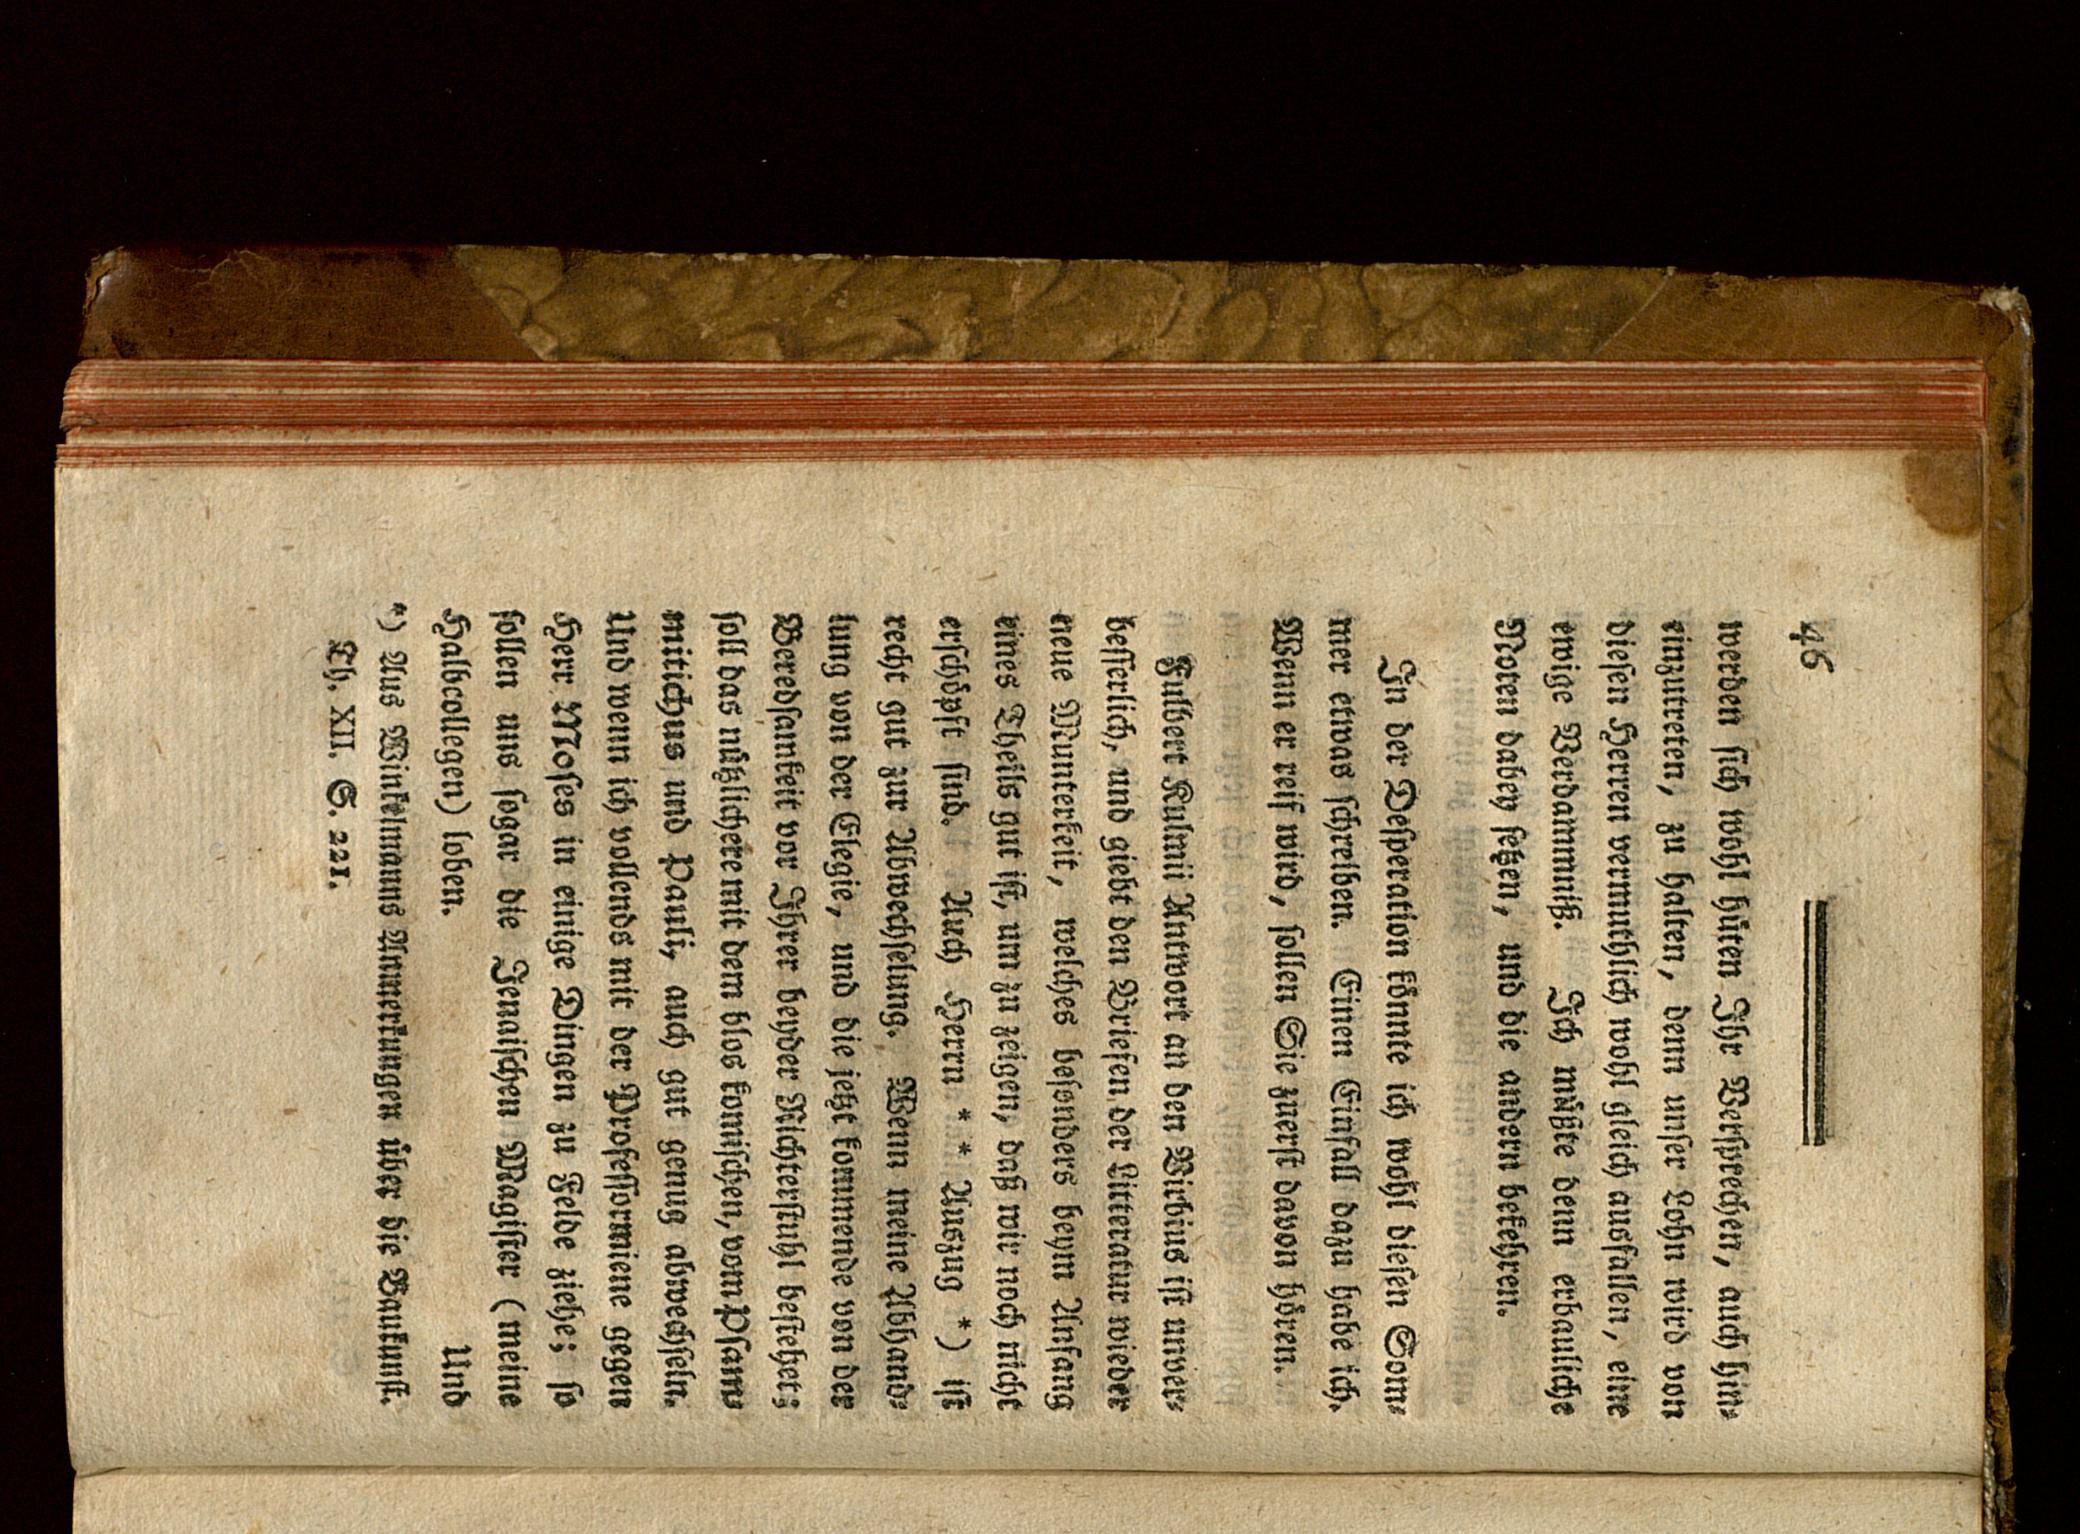 46
werden sich wohl hüten Ihr Versprechen, auch hin-
einzutreten, zu halten, denn unser Lohn wird von
diesen Herren vermuthlich wohl gleich ausfallen, eine
ewige Verdammniß. Ich müßte denn erbauliche
Noten dabey setzen, und die andern bekehren.
In der Desperation könnte ich wohl diesen Som-
mer etwas schreiben. Einen Einfall dazu habe ich.
Wenn er reif wird, sollen Sie zuerst davon hören.
Fulbert Kulmii Antwort an den Virbius ist unver-
besserlich, und giebt den Briefen der Litteratur wieder
neue Munterkeit, welches besonders beym Anfang
eines Theils gut ist, um zu zeigen, daß wir noch nicht
erschöpft sind. Auch Herrn * * Auszug *) ist
recht gut zur Abwechselung. Wenn meine Abhand-
lung von der Elegie, und die jetzt kommende von der
Beredsamkeit vor Ihrer beyder Richterstuhl bestehet;
soll das nützlichere mit dem blos komischen, vom Psam-
mitichus und Pauli, auch gut genug abwechseln.
Und wenn ich vollends mit der Professormiene gegen
Herr Moses in einige Dingen zu Felde ziehe; so
sollen uns sogar die Jenaischen Magister (meine
Halbcollegen) loben.
Und
*) Aus Winkelmanns Anmerkungen über die Baukunst.
Th. XII. S. 221.